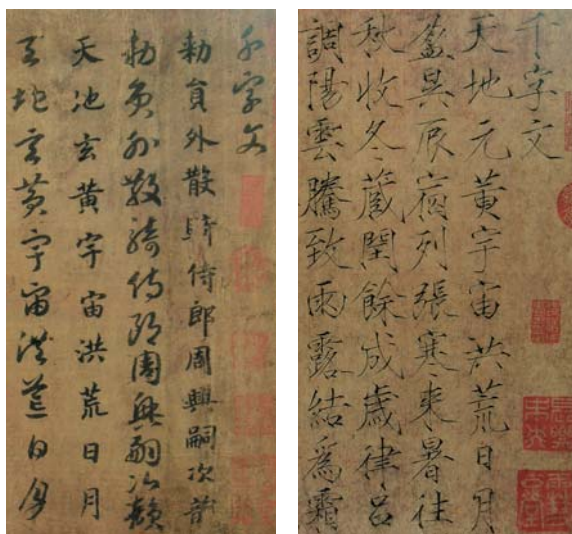 千字文
勅員外散騎侍郎周興嗣次韵
勅員外散騎侍郎周興嗣次韻
天地玄黃宇宙洪荒日月
天地玄黃宇宙洪荒日月
千字文
天地元黃宇宙洪荒日月
盈昃辰宿列張寒來暑往
秋收冬藏閏餘成歲律呂
調陽雲騰致雨露結爲霜